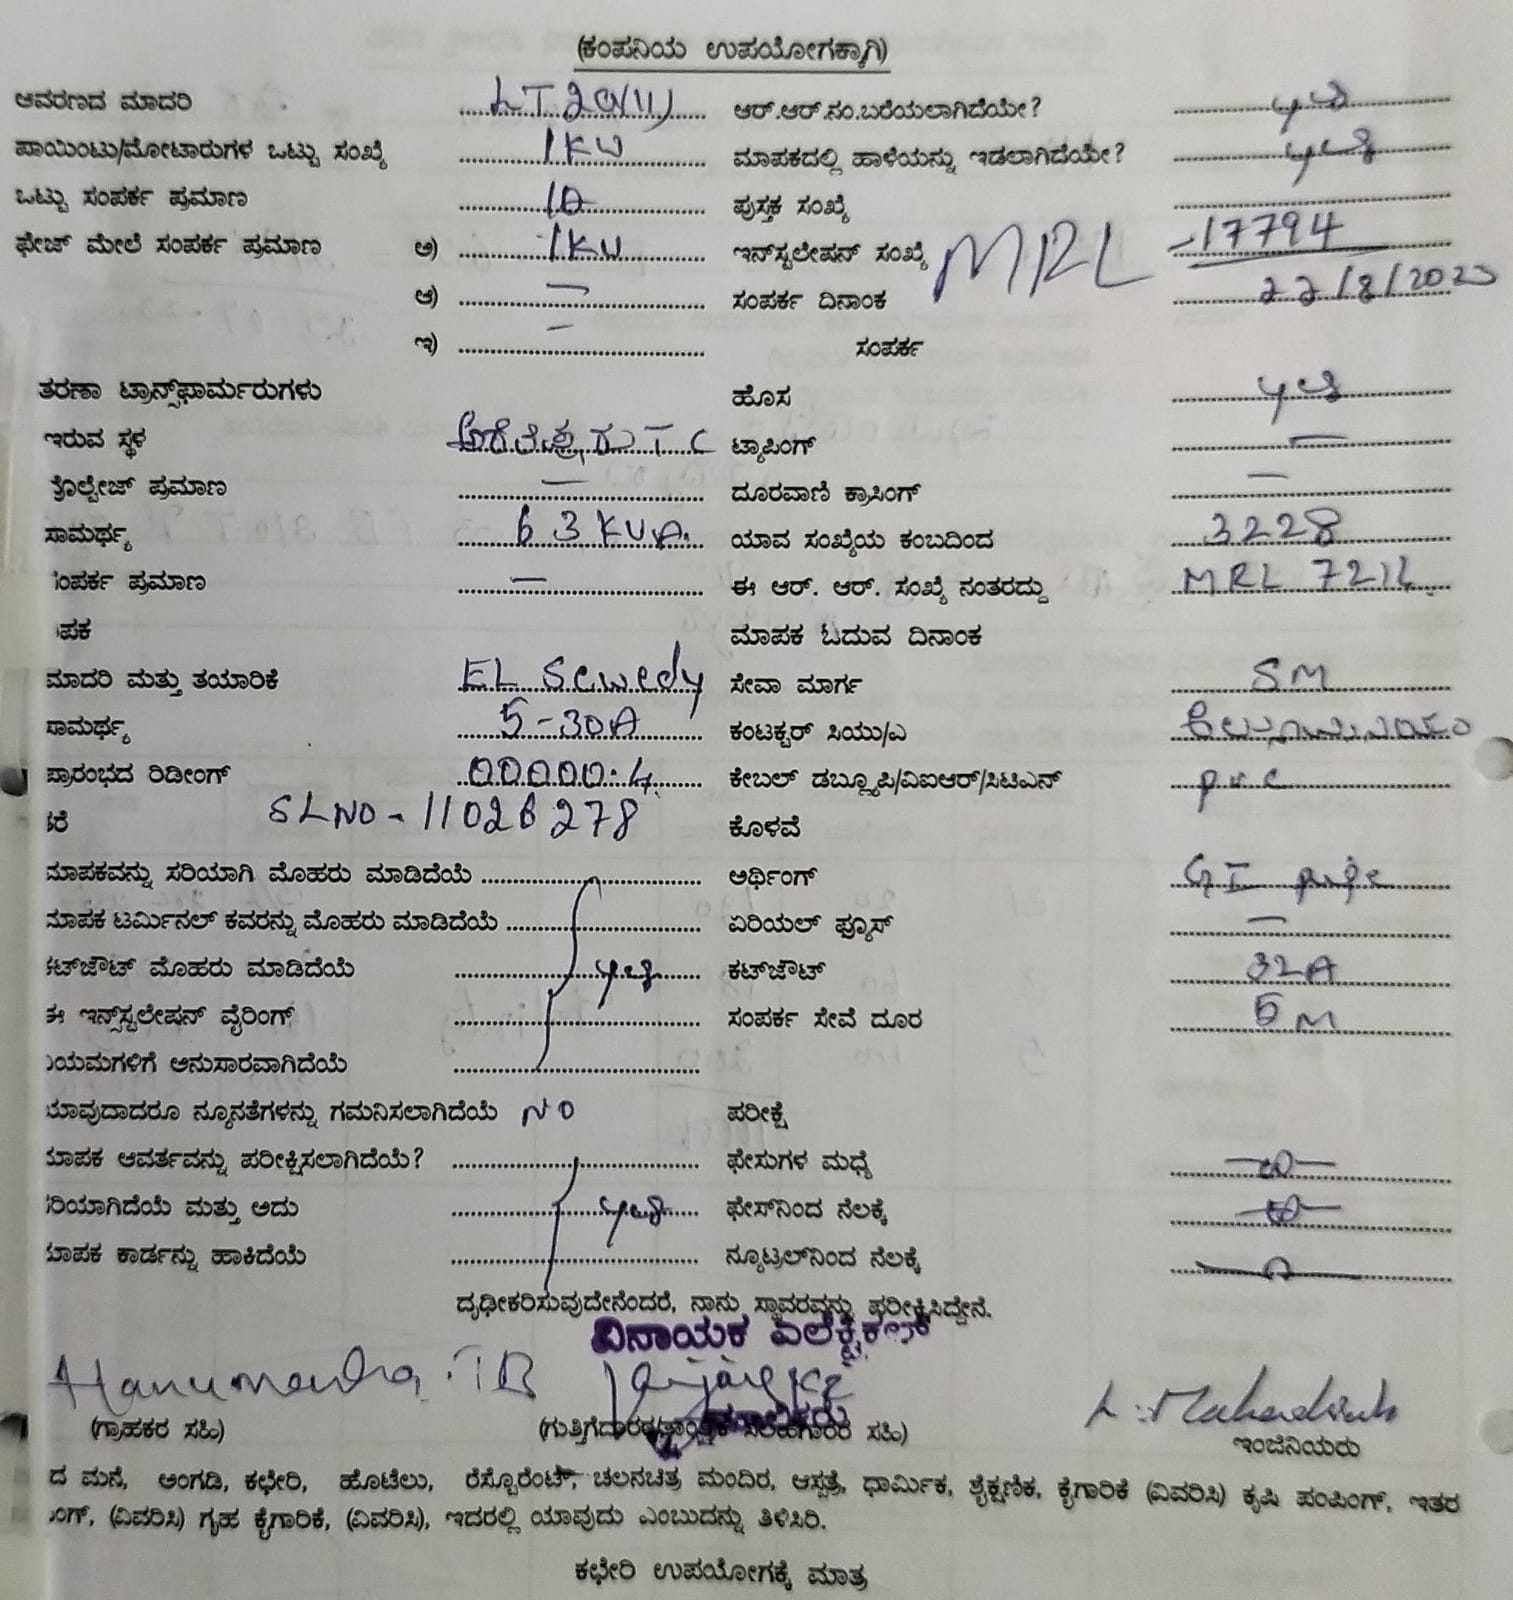 (ಕಂಪನಿಯ ಉಪಯೋಗಕ್ಕಾಗಿ)
ಆವರಣದ ಮಾದರಿ LT 2(a)(ii) ಆರ್.ಆರ್.ನಂ.ಬರೆಯಲಾಗಿದೆಯೇ? yes
ಪಾಯಿಂಟು/ಮೋಟಾರುಗಳ ಒಟ್ಟು ಸಂಖ್ಯೆ 1KW ಮಾಪಕದಲ್ಲಿ ಹಾಳೆಯನ್ನು ಇಡಲಾಗಿದೆಯೇ? yes
ಒಟ್ಟು ಸಂಪರ್ಕ ಪ್ರಮಾಣ 1Ø ಪುಸ್ತಕ ಸಂಖ್ಯೆ
ಫೇಜ್ ಮೇಲೆ ಸಂಪರ್ಕ ಪ್ರಮಾಣ ಅ) 1KW ಇನ್‌ಸ್ಟಲೇಷನ್ ಸಂಖ್ಯೆ MRL - 17794
ಆ) — ಸಂಪರ್ಕ ದಿನಾಂಕ 22/8/2023
ಇ) — ಸಂಪರ್ಕ
ತರಣಾ ಟ್ರಾನ್ಸ್‌ಫಾರ್ಮರುಗಳು ಹೊಸ yes
ಇರುವ ಸ್ಥಳ T C ಟ್ಯಾಪಿಂಗ್ —
ವೋಲ್ಟೇಜ್ ಪ್ರಮಾಣ — ದೂರವಾಣಿ ಕ್ರಾಸಿಂಗ್ —
ಸಾಮರ್ಥ್ಯ 63 KVA. ಯಾವ ಸಂಖ್ಯೆಯ ಕಂಬದಿಂದ 3228
ಸಂಪರ್ಕ ಪ್ರಮಾಣ — ಈ ಆರ್. ಆರ್. ಸಂಖ್ಯೆ ನಂತರದ್ದು MRL
ಾಪಕ ಮಾಪಕ ಓದುವ ದಿನಾಂಕ
ಮಾದರಿ ಮತ್ತು ತಯಾರಿಕೆ EL Sewedy ಸೇವಾ ಮಾರ್ಗ SM
ಸಾಮರ್ಥ್ಯ 5-30A ಕಂಟಕ್ಟರ್ ಸಿಯು/ಎ
ಪ್ರಾರಂಭದ ರಿಡೀಂಗ್ 00000.4 ಕೇಬಲ್ ಡಬ್ಲ್ಯೂಪಿ/ವಿಐಆರ್/ಸಿಟಿಎನ್ pvc
ಕರೆ SLNO - 11026278 ಕೊಳವೆ
ಮಾಪಕವನ್ನು ಸರಿಯಾಗಿ ಮೊಹರು ಮಾಡಿದೆಯೆ ಅರ್ಥಿಂಗ್ GI pipe
ಮಾಪಕ ಟರ್ಮಿನಲ್ ಕವರನ್ನು ಮೊಹರು ಮಾಡಿದೆಯೆ ಏರಿಯಲ್ ಫ್ಯೂಸ್ —
ಕಟ್‌ಜೌಟ್ ಮೊಹರು ಮಾಡಿದೆಯೆ yes ಕಟ್‌ಜೌಟ್ 32A
ಈ ಇನ್ಸ್‌ಸ್ಟಲೇಷನ್ ವೈರಿಂಗ್ ಸಂಪರ್ಕ ಸೇವೆ ದೂರ 5 M
ಿಯಮಗಳಿಗೆ ಅನುಸಾರವಾಗಿದೆಯೆ
ಯಾವುದಾದರೂ ನ್ಯೂನತೆಗಳನ್ನು ಗಮನಿಸಲಾಗಿದೆಯೆ NO ಪರೀಕ್ಷೆ
ಮಾಪಕ ಆವರ್ತವನ್ನು ಪರೀಕ್ಷಿಸಲಾಗಿದೆಯೆ? ಫೇಸುಗಳ ಮಧ್ಯೆ
ಸರಿಯಾಗಿದೆಯೆ ಮತ್ತು ಅದು yes ಫೇಸ್‌ನಿಂದ ನೆಲಕ್ಕೆ
ಮಾಪಕ ಕಾರ್ಡನ್ನು ಹಾಕಿದೆಯೆ ನ್ಯೂಟ್ರಲ್‌ನಿಂದ ನೆಲಕ್ಕೆ
ದೃಢೀಕರಿಸುವುದೇನೆಂದರೆ, ನಾನು ಸ್ಥಾವರವನ್ನು ಪರೀಕ್ಷಿಸಿದ್ದೇನೆ.
ವಿನಾಯಕ ಎಲೆಕ್ಟ್ರಿಕಲ್ಸ್
(ಗ್ರಾಹಕರ ಸಹಿ) ಮಾಲೀಕರು ಸಹಿ)
ಇಂಜಿನಿಯರು
ದ ಮನೆ, ಅಂಗಡಿ, ಕಛೇರಿ, ಹೊಟೆಲು, ರೆಸ್ಟೊರೆಂಟ್, ಚಲನಚಿತ್ರ ಮಂದಿರ, ಆಸ್ಪತ್ರೆ, ಧಾರ್ಮಿಕ, ಶೈಕ್ಷಣಿಕ, ಕೈಗಾರಿಕೆ (ವಿವರಿಸಿ) ಕೃಷಿ ಪಂಪಿಂಗ್, ಇತರ
ಂಗ್, (ವಿವರಿಸಿ) ಗೃಹ ಕೈಗಾರಿಕೆ, (ವಿವರಿಸಿ), ಇದರಲ್ಲಿ ಯಾವುದು ಎಂಬುದನ್ನು ತಿಳಿಸಿರಿ.
ಕಛೇರಿ ಉಪಯೋಗಕ್ಕೆ ಮಾತ್ರ